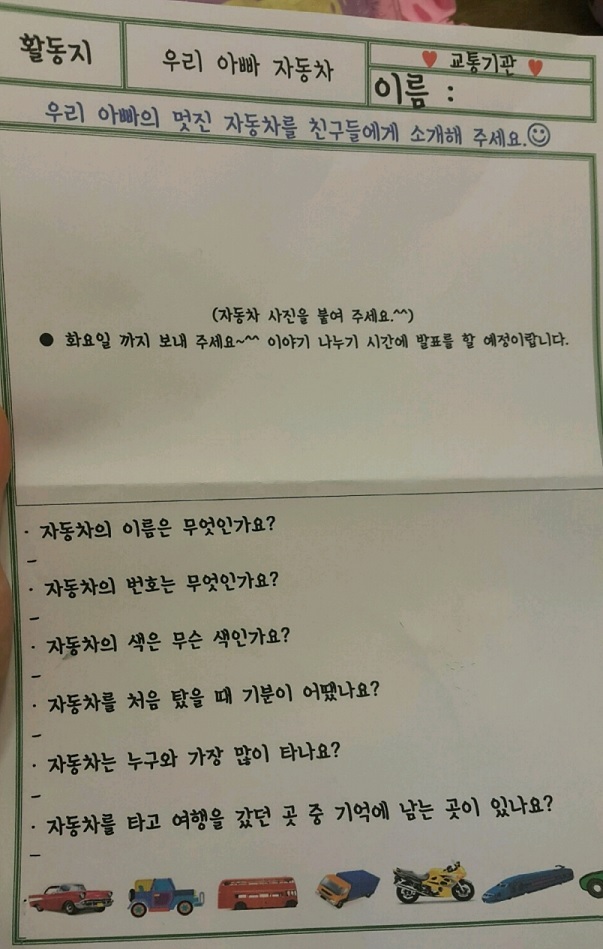 활동지
우리 아빠 자동차
♥ 교통기관 ♥
이름 :
우리 아빠의 멋진 자동차를 친구들에게 소개해 주세요.☺
(자동차 사진을 붙여 주세요.^^)
● 화요일 까지 보내 주세요~^^ 이야기 나누기 시간에 발표를 할 예정이랍니다.
· 자동차의 이름은 무엇인가요?
–
· 자동차의 번호는 무엇인가요?
–
· 자동차의 색은 무슨 색인가요?
–
· 자동차를 처음 탔을 때 기분이 어땠나요?
–
· 자동차는 누구와 가장 많이 타나요?
–
· 자동차를 타고 여행을 갔던 곳 중 기억에 남는 곳이 있나요?
–